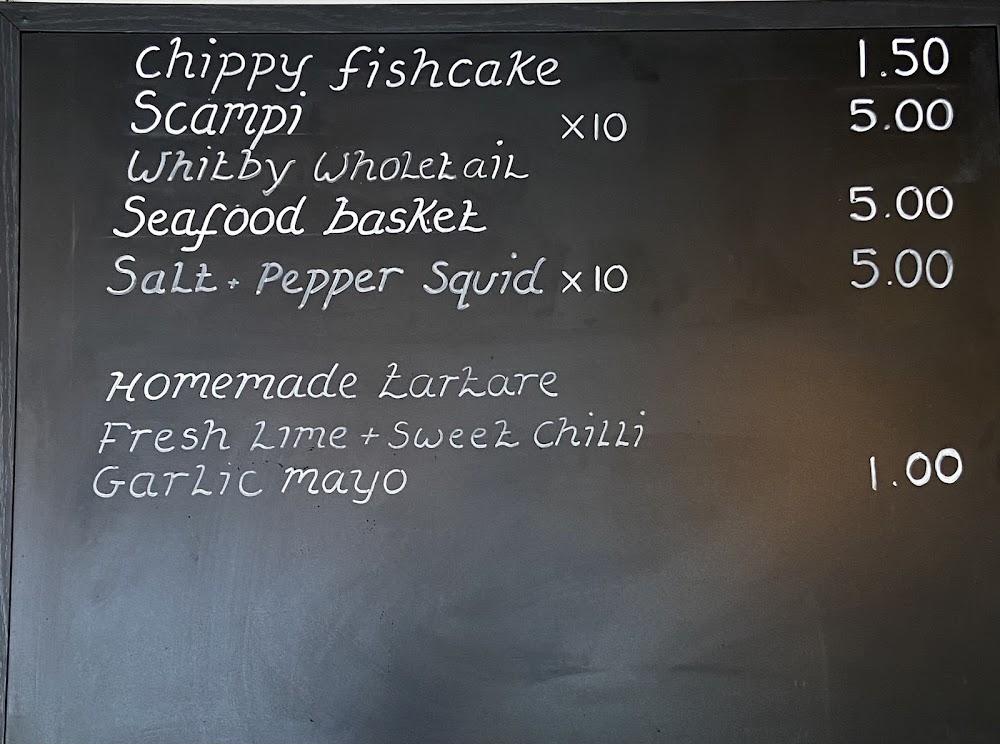 Chippy fishcake 1.50
Scampi x10 5.00
Whitby Wholetail
Seafood basket 5.00
Salt + Pepper Squid x10 5.00
Homemade tartare
Fresh Lime + Sweet Chilli
Garlic mayo 1.00